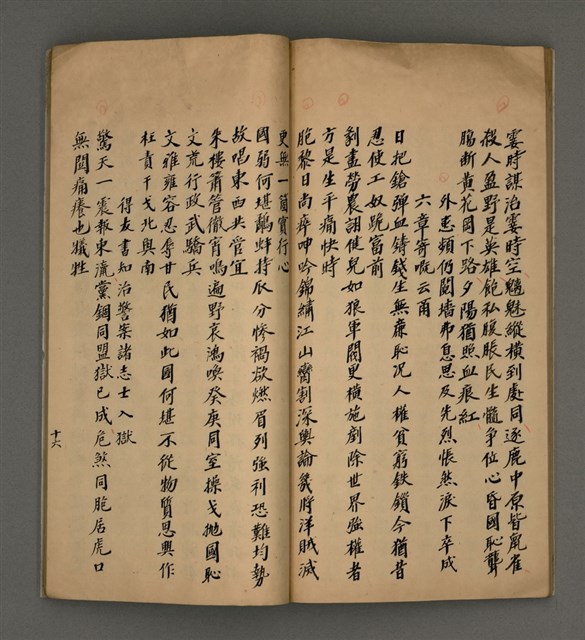 霎時謀治霎時空魑魅縱橫到處同逐鹿中原皆鼠雀
殺人盈野是英雄飽私腹脹民生髓爭位心昏國恥聾
腸斷黃花岡下路夕陽猶照血痕紅
外患頻仍鬩墻弗息思及先烈悵然淚下卒成
六章寄嘅云爾
日把鎗彈血鑄錢生無廉恥況人權貧窮鉄鎖今猶昔
忍使工奴跪富前
剝盡勞農詡健兒如狼軍閥更橫施剷除世界強權者
方是生平痛快時
胞黎日尚瘁呻吟錦繡江山臠割深輿論幾將洋賊滅
更無一箇實行心
國弱何堪鷸蚌持瓜分慘禍欲燃眉列強利恐難均勢
故唱東西共管宜
朱樓簫管徹宵鳴遍野哀鴻喚癸庚同室操戈拋國恥
文荒行政武驕兵
文雅雍容忍辱甘民猶如此國何堪不從物質思興作
枉責干戈北與南
得友書知治警案諸志士入獄
驚天一震報東流黨錮同盟獄已成危煞同胞居虎口
無關痛癢也犧牲
十六